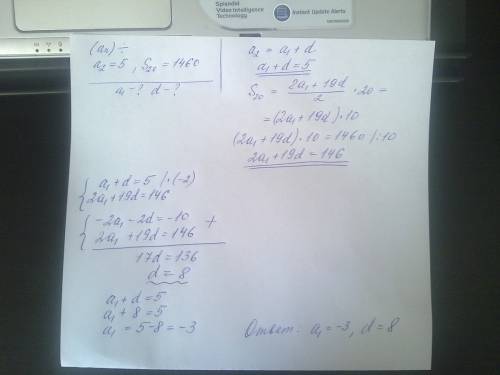 Splendid
Video Intelligence
Technology
Instant Update Alerts
(aₙ) ÷
a₂ = 5 , S₂₀ = 1460
a₁ - ? d - ?
a₂ = a₁ + d
a₁ + d = 5
S₂₀ = (2a₁ + 19d)/2 · 20 =
= (2a₁ + 19d) · 10
(2a₁ + 19d) · 10 = 1460 /:10
2a₁ + 19d = 146
{ a₁ + d = 5 / · (-2)
2a₁ + 19d = 146
{ -2a₁ - 2d = -10 +
2a₁ + 19d = 146
17d = 136
d = 8
a₁ + d = 5
a₁ + 8 = 5
a₁ = 5 - 8 = -3
Ответ: a₁ = -3, d = 8